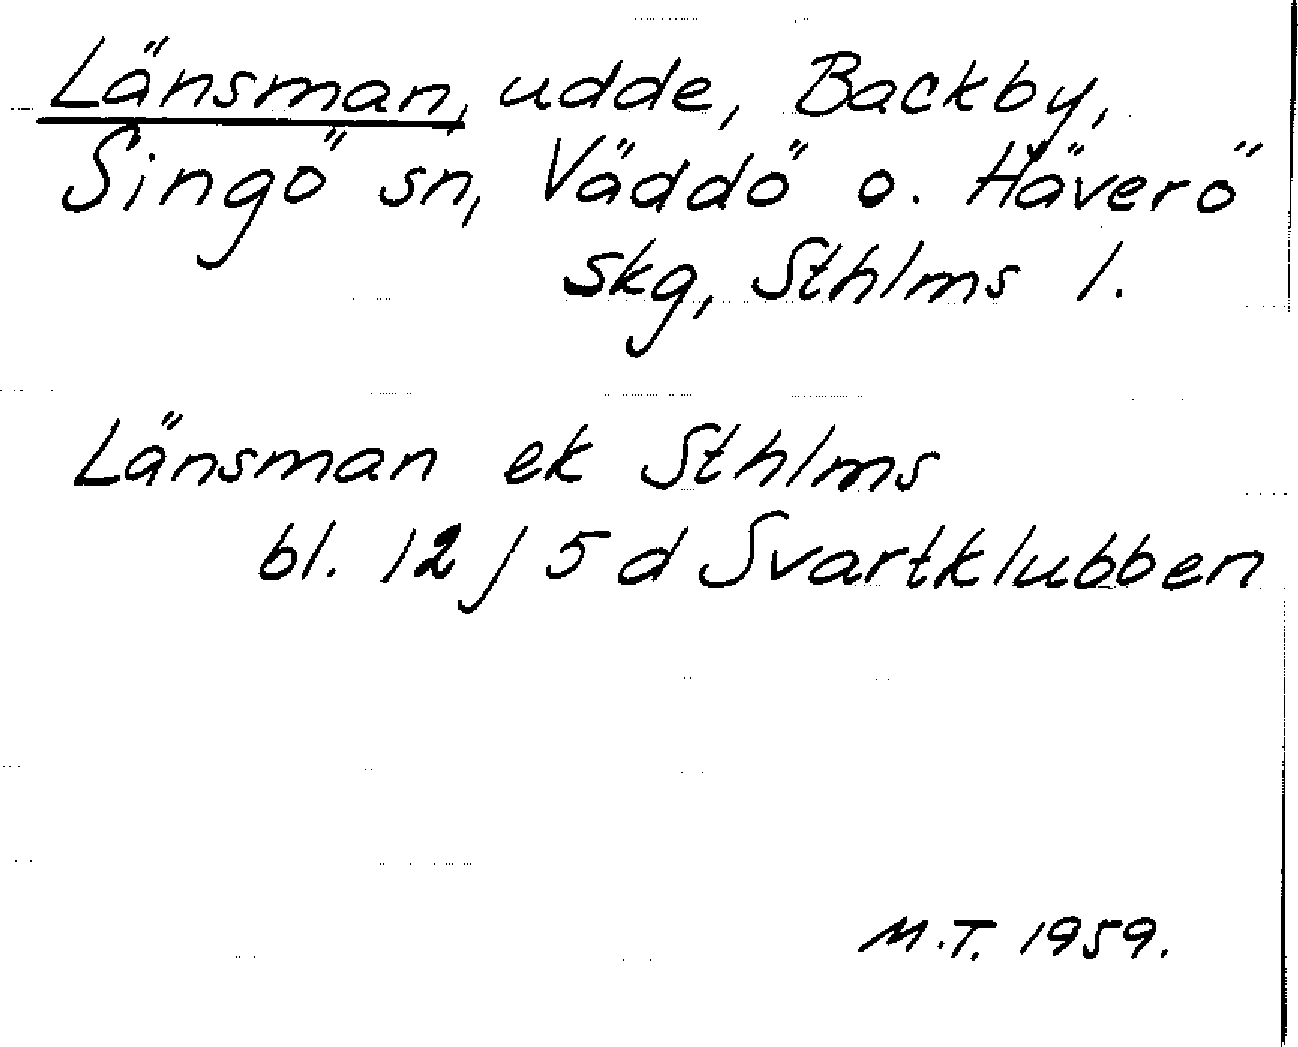 Länsman, udde, Backby,
Singö sn, Väddö o. Häverö
skg, Sthlms l.
Länsman ek Sthlms
bl. 12 j 5 d Svartklubben
M.T. 1959.